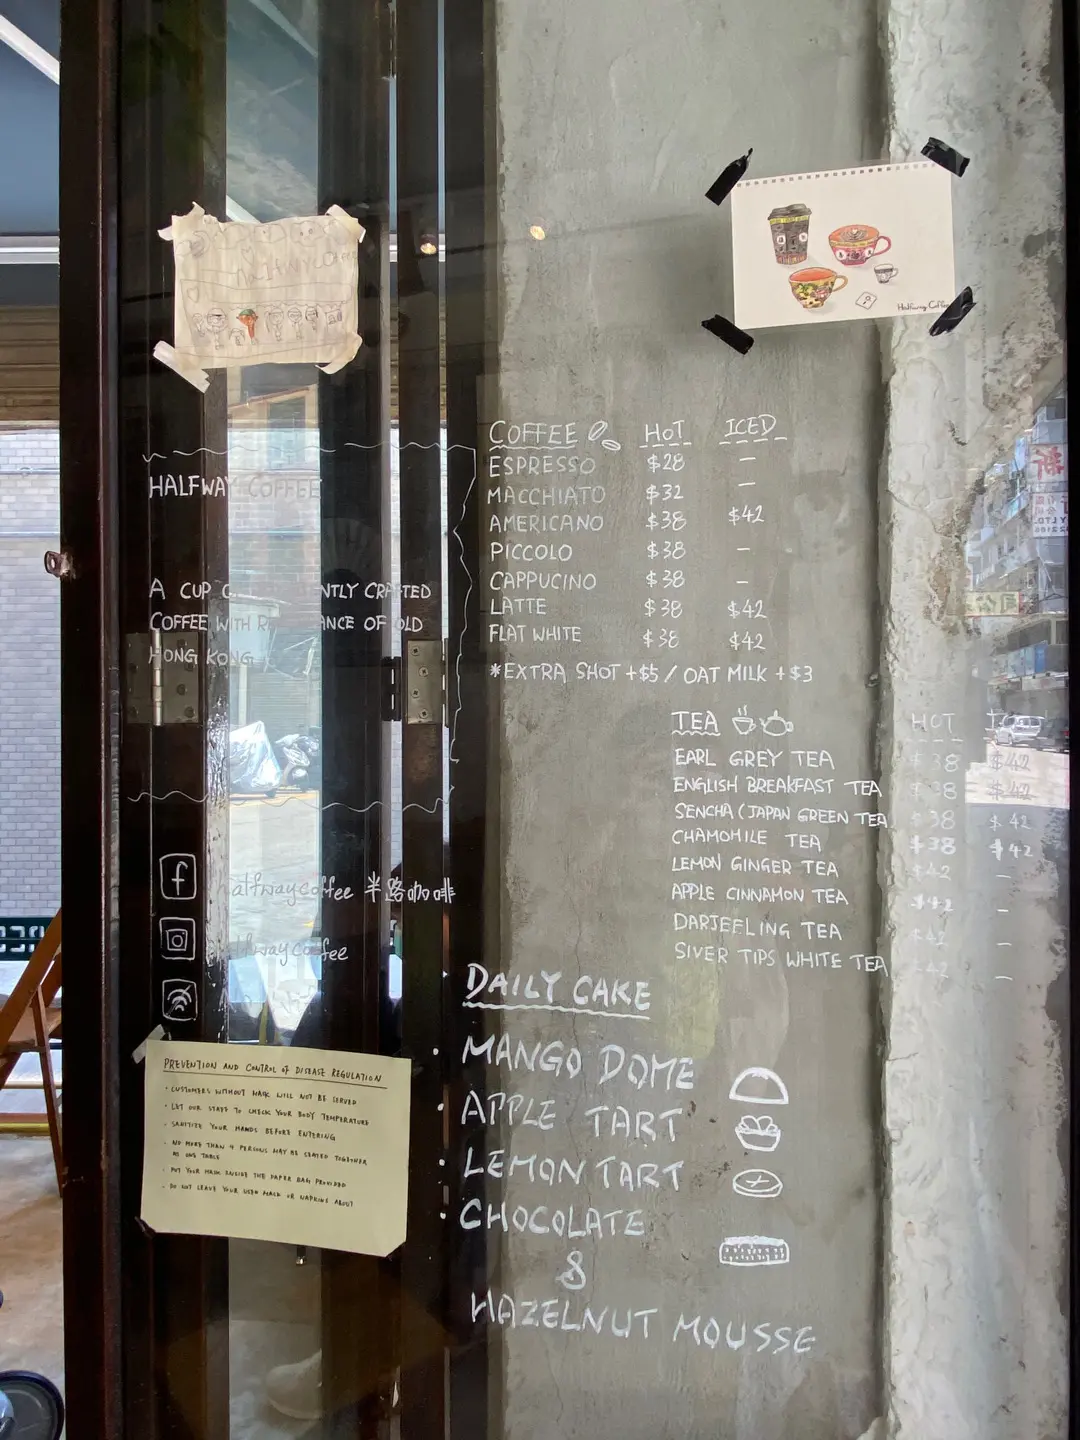 Halfway Coffee
HALFWAY COFFEE
A CUP NTLY CRAFTED
COFFEE WITH ANCE OF OLD
HONG KONG
halfwaycoffee 半路咖啡
halfwaycoffee
PREVENTION AND CONTROL OF DISEASE REGULATION
· CUSTOMERS WITHOUT MASK WILL NOT BE SERVED
· LET OUR STAFF TO CHECK YOUR BODY TEMPERATURE
· SANITIZE YOUR HANDS BEFORE ENTERING
· NO MORE THAN 4 PERSONS MAY BE SEATED TOGETHER
AT ONE TABLE
· PUT YOUR MASK INSIDE THE PAPER BAG PROVIDED
· DO NOT LEAVE YOUR USED MASK OR NAPKINS ABOUT
COFFEE HOT ICED
ESPRESSO $28 —
MACCHIATO $32 —
AMERICANO $38 $42
PICCOLO $38 —
CAPPUCINO $38 —
LATTE $38 $42
FLAT WHITE $38 $42
*EXTRA SHOT +$5 / OAT MILK +$3
TEA HOT
EARL GREY TEA $38 $42
ENGLISH BREAKFAST TEA $38 $42
SENCHA (JAPAN GREEN TEA $38 $42
CHAMOMILE TEA $38 $42
LEMON GINGER TEA $42 —
APPLE CINNAMON TEA $42 —
DARJEELING TEA $42 —
SIVER TIPS WHITE TEA $42 —
DAILY CAKE
· MANGO DOME
· APPLE TART
· LEMON TART
· CHOCOLATE
&
HAZELNUT MOUSSE